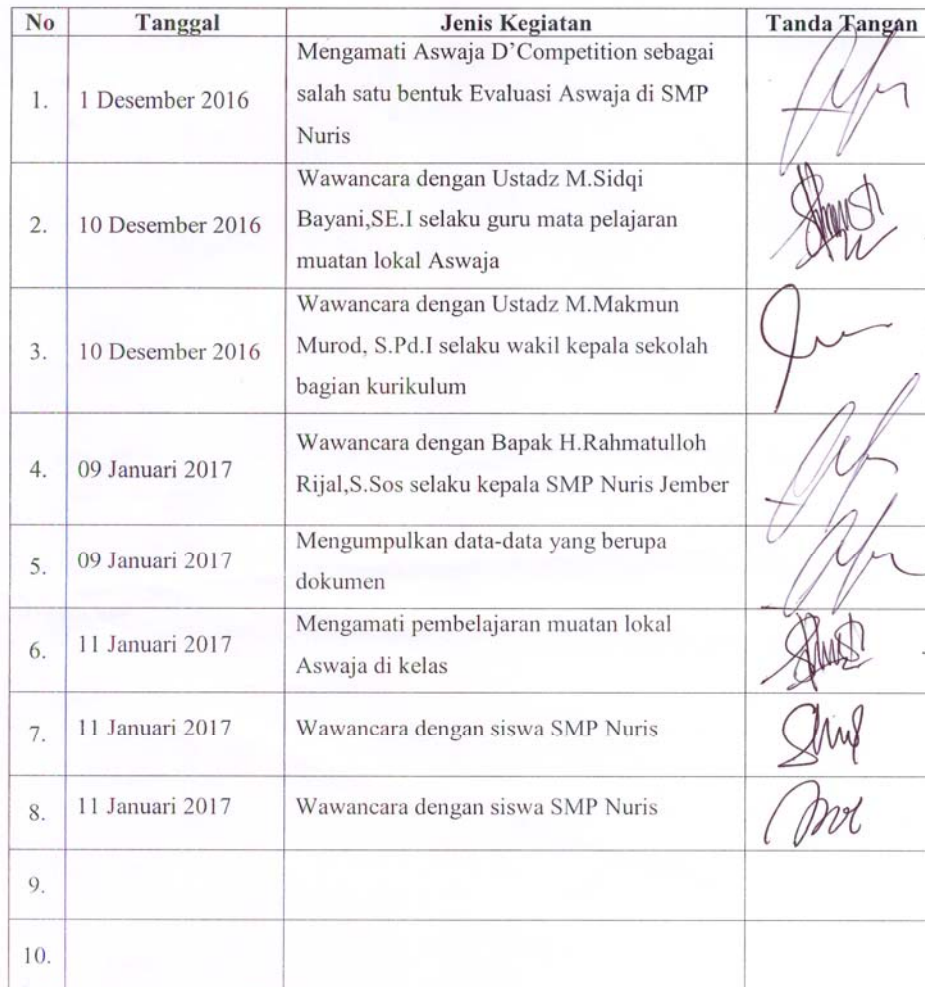 No Tanggal Jenis Kegiatan Tanda Tangan
1. 1 Desember 2016 Mengamati Aswaja D’Competition sebagai
salah satu bentuk Evaluasi Aswaja di SMP
Nuris
2. 10 Desember 2016 Wawancara dengan Ustadz M.Sidqi
Bayani,SE.I selaku guru mata pelajaran
muatan lokal Aswaja
3. 10 Desember 2016 Wawancara dengan Ustadz M.Makmun
Murod, S.Pd.I selaku wakil kepala sekolah
bagian kurikulum
4. 09 Januari 2017 Wawancara dengan Bapak H.Rahmatulloh
Rijal,S.Sos selaku kepala SMP Nuris Jember
5. 09 Januari 2017 Mengumpulkan data-data yang berupa
dokumen
6. 11 Januari 2017 Mengamati pembelajaran muatan lokal
Aswaja di kelas
7. 11 Januari 2017 Wawancara dengan siswa SMP Nuris
8. 11 Januari 2017 Wawancara dengan siswa SMP Nuris
9.
10.